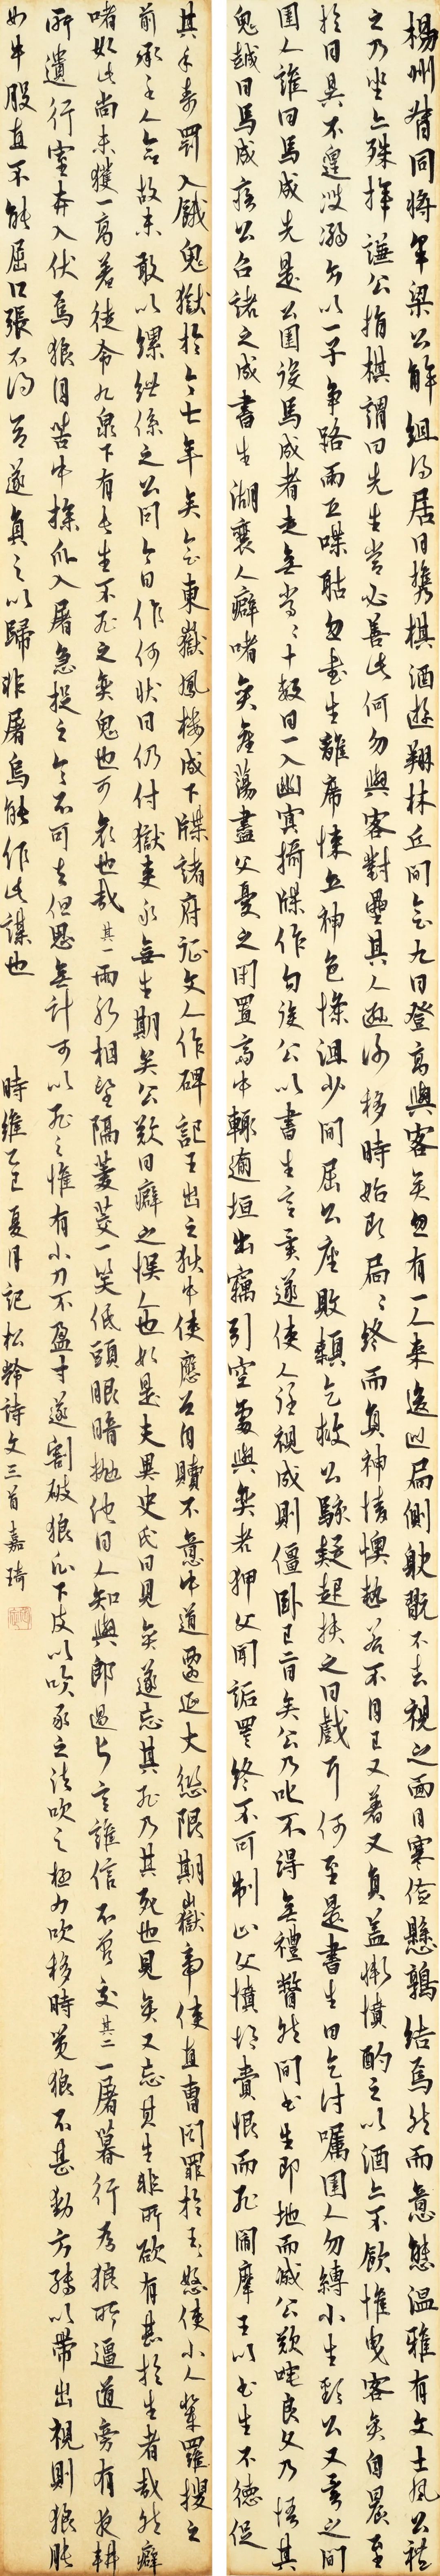 揚州督同將軍梁公解組鄉居日攜棋酒遊翔林丘間會九日登高與客弈忽有一人來逡巡局側耽玩不去視之面目寒儉懸鶉結焉然而意態溫雅有文士風公禮
之乃坐亦殊撝謙公指棋謂曰先生當必善此何勿與客對壘其人遜謝移時始即局局終而負神情懊熱若不自已又著又負益慚憤酌之以酒亦不飲惟曳客弈自晨至
於日昃不遑溲溺方以一子爭路兩互喋聒忽書生離席悚立神色慘沮少間屈公座敗顙乞救公駭疑起扶之曰戲耳何至是書生曰乞付囑圉人勿縛小生頸公又異之問
圉人誰曰馬成先是公圉役馬成者走無常十數日一入幽冥攝牒作勾役公以書生言異遂使人往視成則僵臥已二日矣公乃叱不得無禮瞥然間書生即地而滅公歎咤良久乃悟其
鬼越日馬成寤公召諸之成書生湖襄人癖嗜弈產蕩盡父憂之閉置齋中輒逾垣出竊引空處與弈者狎父聞詬詈終不可制止父憤恨賫恨而死閻摩王以書生不德促
其年壽罰入餓鬼獄於今七年矣會東嶽鳳樓成下牒諸府征文人作碑記王出之獄中使應召自贖不意中道遷延大愆限期嶽帝使直曹問罪於王王怒使小人輩羅搜之
前承主人命故未敢以縲紲係之公問今日作何狀曰仍付獄吏永無生期矣公歎曰癖之悞人也如是夫異史氏曰見弈遂忘其死乃其死也見弈又忘其生非所欲有甚於生者哉然癖
嗜如此尚未獲一高著徒令九泉下有長生不死之弈鬼也可哀也哉其一兩船相望隔菱茭一笑低頭眼暗拋他日人知與郎遇片言誰信不曾交其二一屠暮行為狼所逼道旁有夜耕
所遺行室奔入伏焉狼自苫中探爪入屠急捉之令不可去但思無計可以死之惟有小刀不盈寸遂割破狼爪下皮以吹豕之法吹之極力吹移時覺狼不甚動方縛以帶出視則狼脹
如牛股直不能屈口張不得合遂負之以歸非屠烏能作此謀也 時維乙巳夏月記松齡詩文三首嘉琦